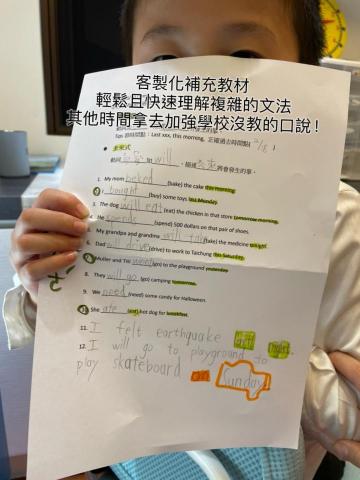 客製化補充教材
輕鬆且快速理解複雜的文法
其他時間拿去加強學校沒教的口說！
Tips 時間點：Last xxx, this morning, 正確過去時間點
未來式
動詞 will, 描述未來將會發生的事.
1. My mom baked (bake) the cake this morning.
2. I bought (buy) some toys last Monday.
3. The dog will eat (eat) the chicken in that store tomorrow morning.
4. He spends (spend) 500 dollars on that pair of shoes.
5. My grandpa and grandma will take (take) the medicine tonight.
6. Dad will drive (drive) to work to Taichung this Saturday.
7. Muller and Tki went (go) to the playground yesterday.
8. They will go (go) camping tomorrow.
9. We need (need) some candy for Halloween.
10. She ate (eat) hot dog for breakfast.
11. I felt earthquake last night.
12. I will go to playground to
play skateboard on Sunday